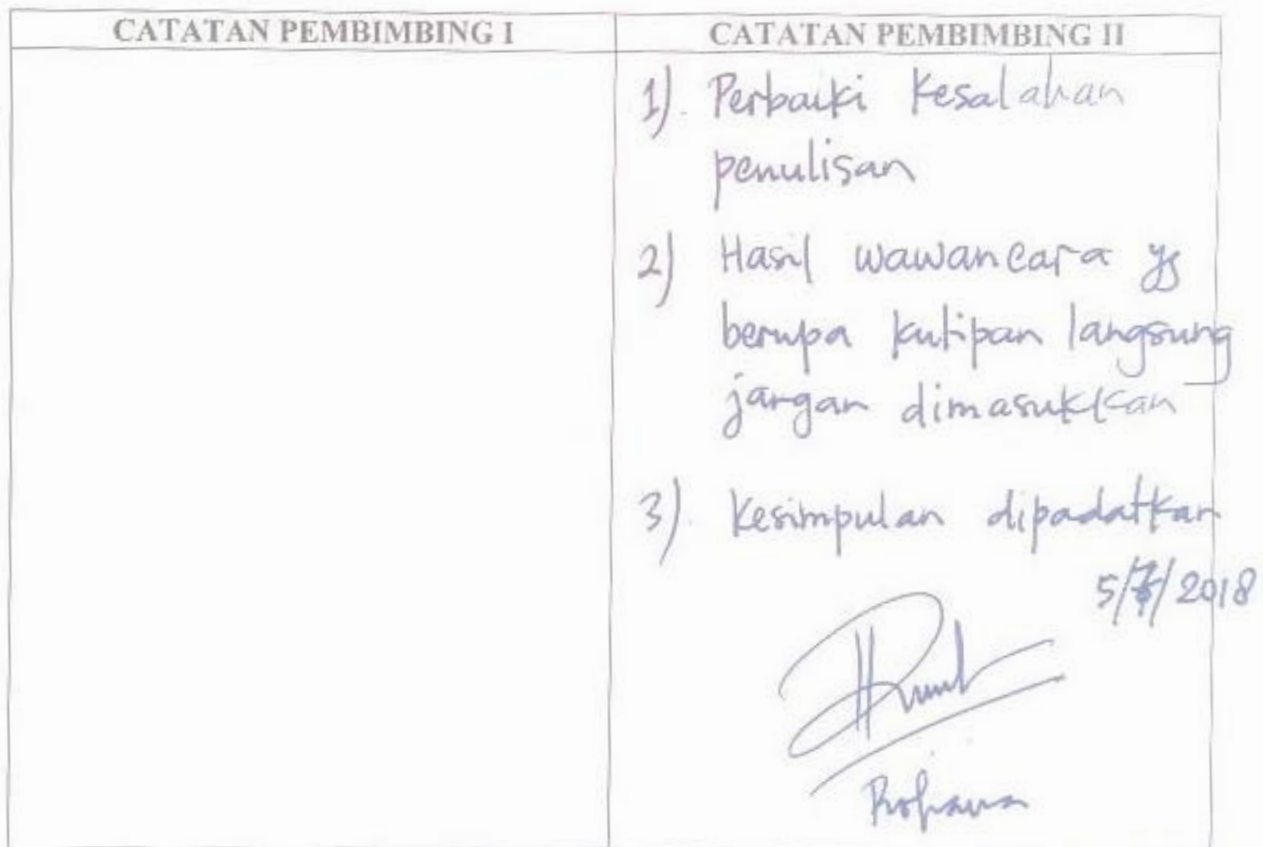 CATATAN PEMBIMBING I
CATATAN PEMBIMBING II
1). Perbaiki Kesalahan
penulisan
2) Hasil wawancara yg
berupa kutipan langsung
jangan dimasukkan
3). Kesimpulan dipadatkan
5/7/2018